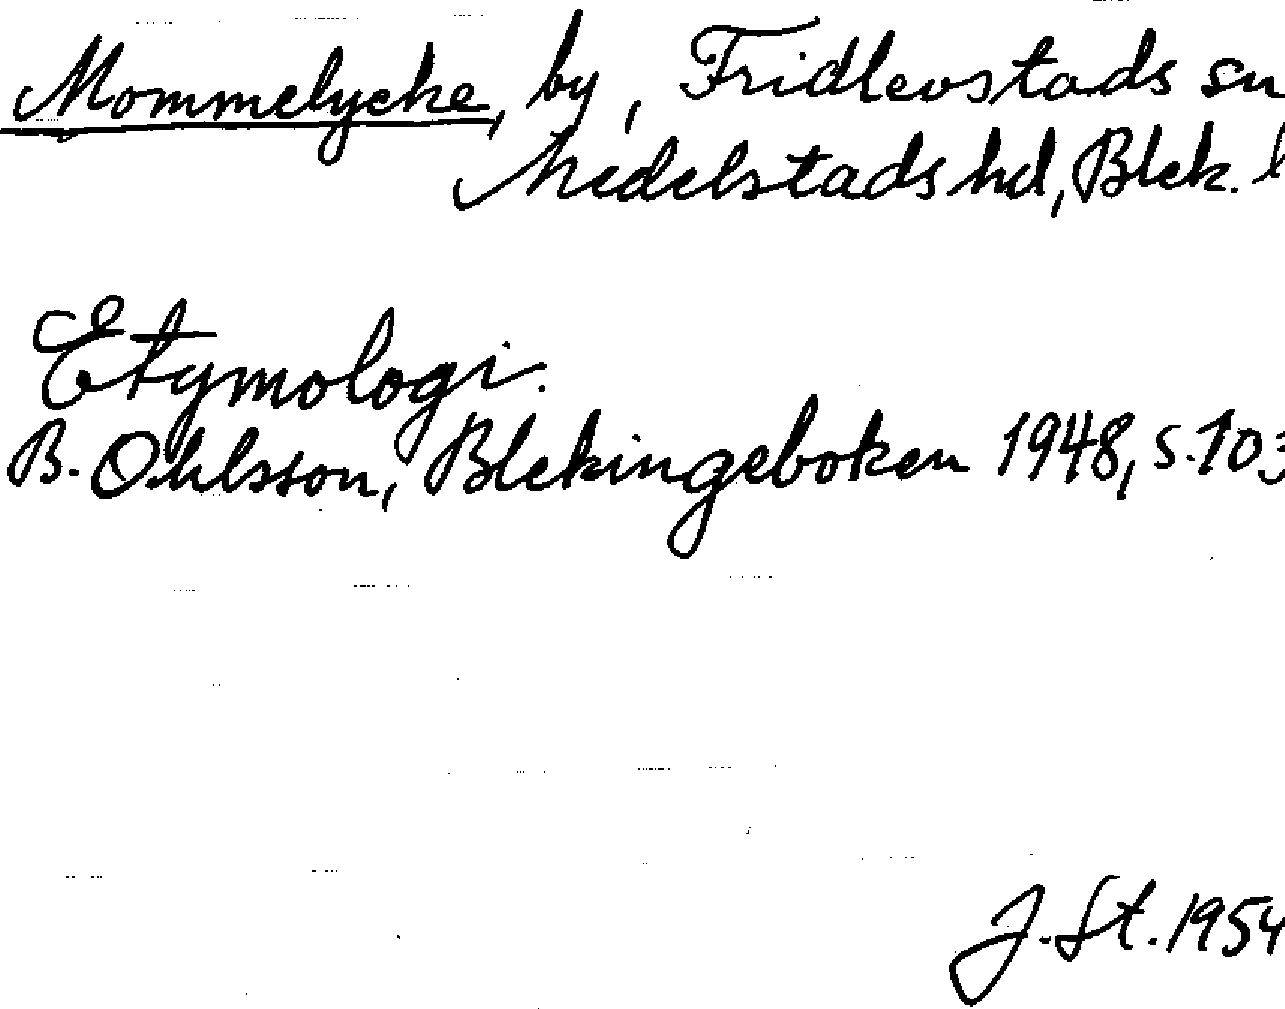 Mommelycke, by, Fridlevstads sn
Medelstads hd, Blek. l
Etymologi.
B. Ohlsson, Blekingeboken 1948, s. 103
J. St. 1954